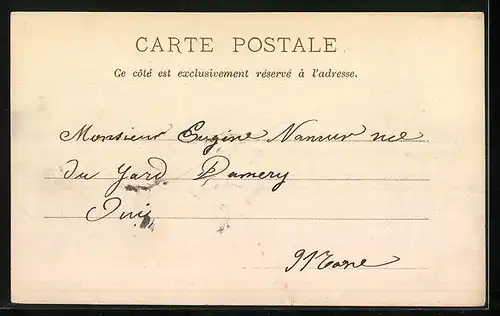 CARTE POSTALE
Ce côté est exclusivement réservé à l'adresse.
Monsieur Eugène Namur rue
du Gard Damery
Marne